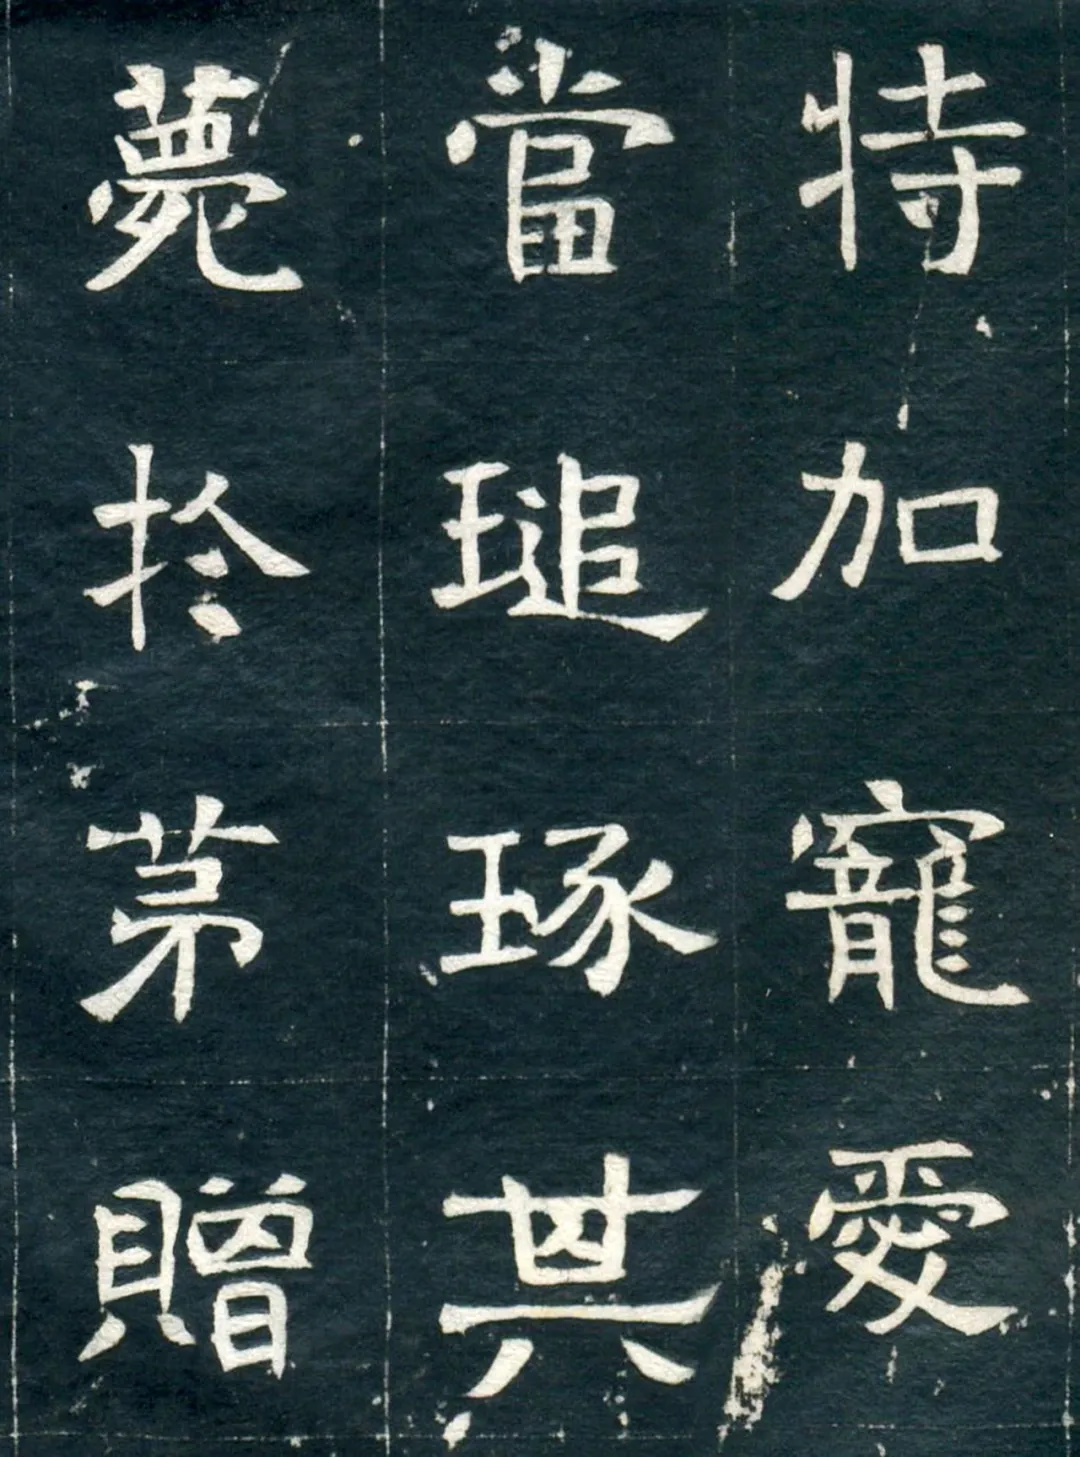 特加寵愛
當琢其
薨於苐贈